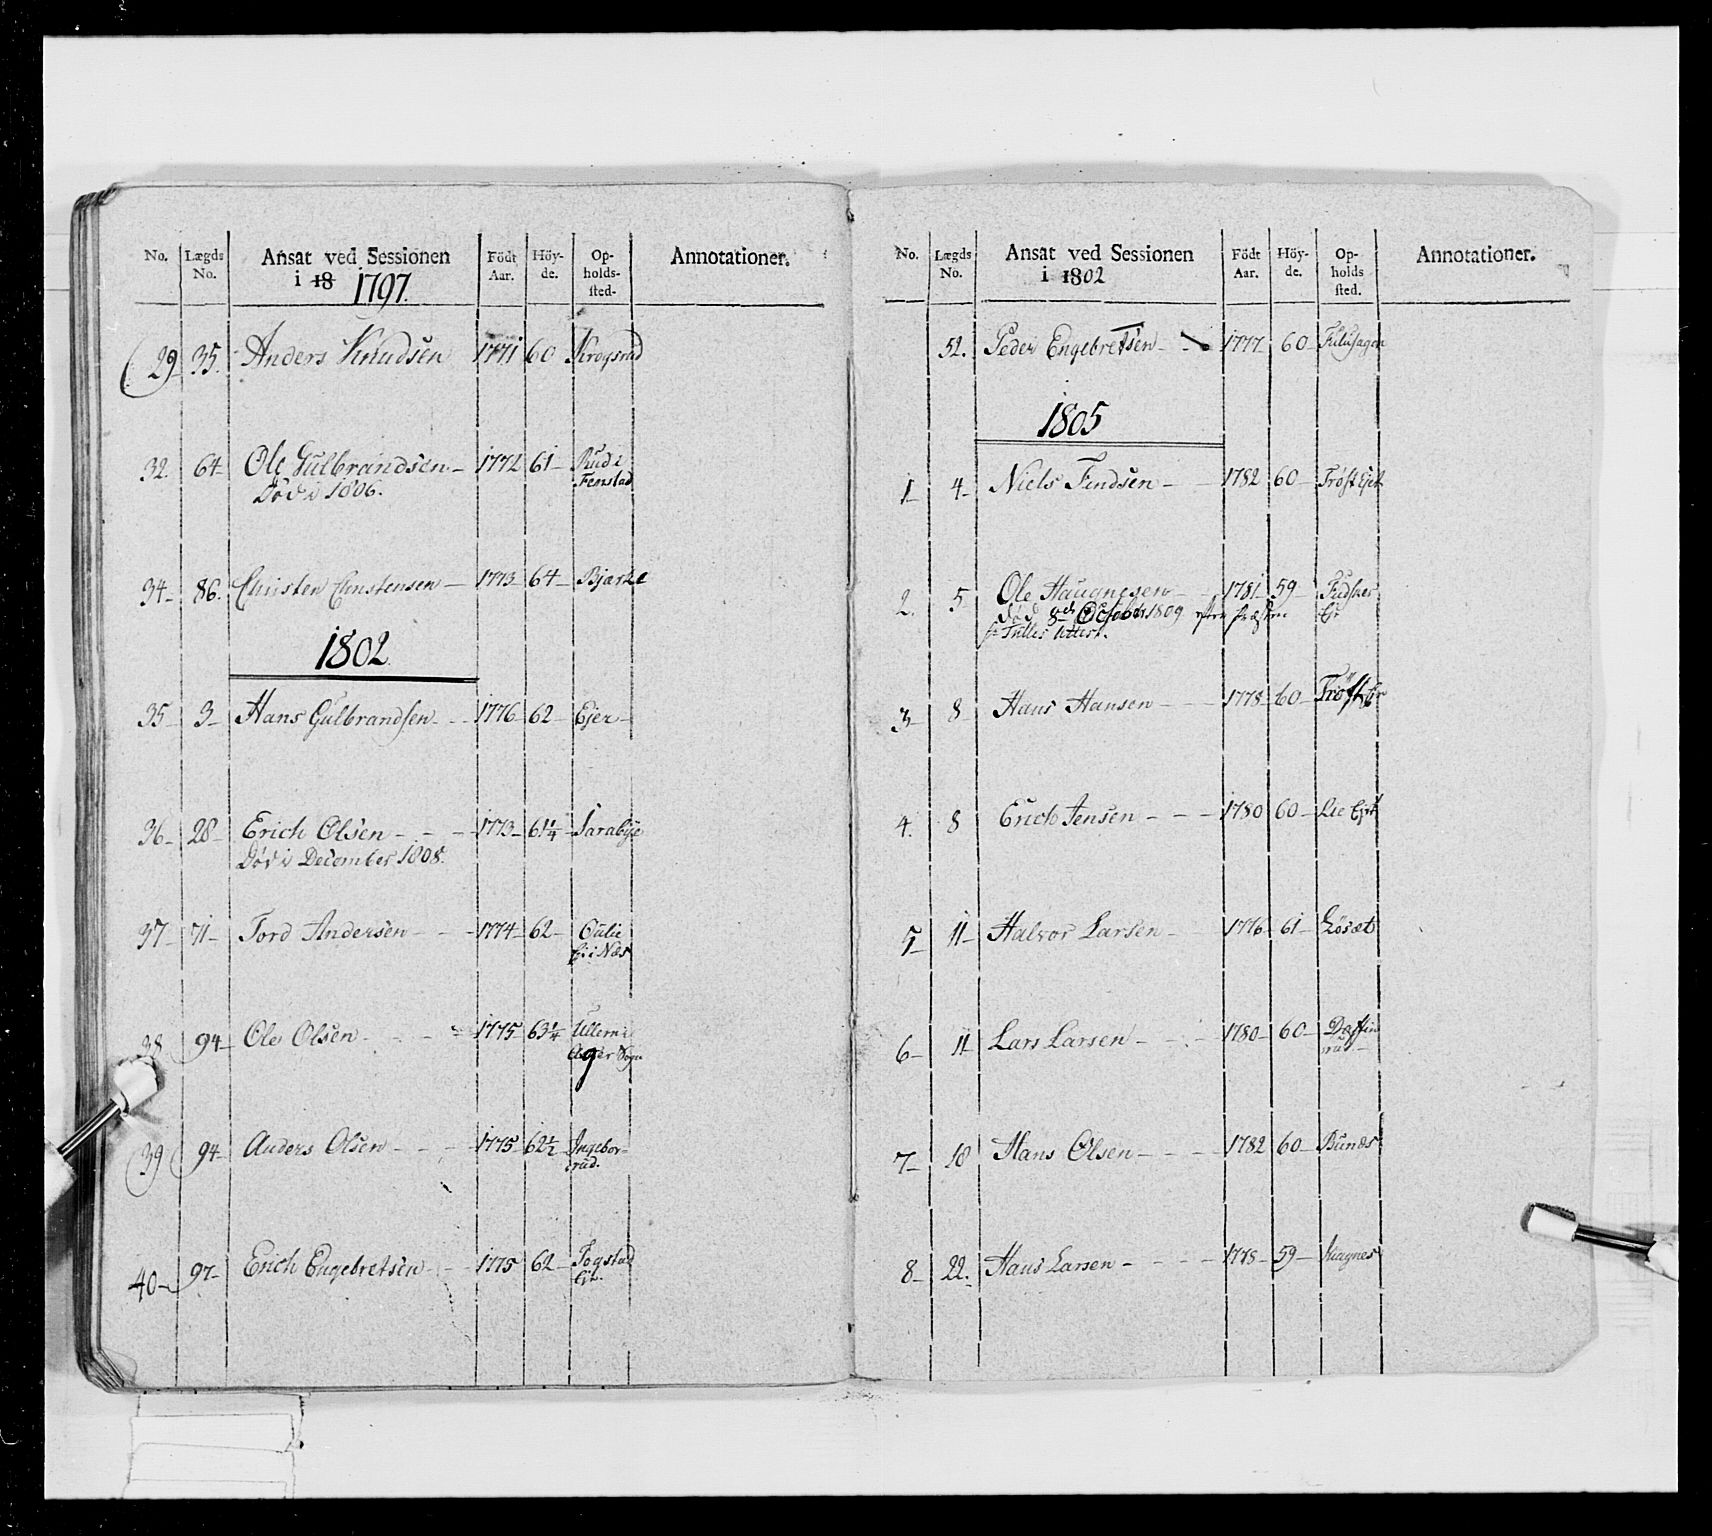 No. Lægds No. Ansat ved Sessionen i 18 1797. Födt Aar. Höy-de. Op-holds-sted. Annotationer.
29 35. Anders Knudsen 1771 60 Krogsrud
32. 64 Ole Gulbrandsen 1772 61 Rud i
Død i 1806. Fenstad
34 86. Christen Christensen 1773 64 Bjørke
1802.
35 3 Hans Gulbrandsen 1776 62 Ejer
36 28 Erich Olsen 1773 61¼ Sarabye
Død i December 1808.
37 71 Tord Andersen 1774 62 Oulie
Ei i Næs
38 94 Ole Olsen 1775 63¼ Ullern i
Ager Sogn
39 94 Anders Olsen 1775 62½ Ingebor-
rud.
40 97 Erich Engebretsen 1775 62 Fogstad
Eie.
No. Lægds No. Ansat ved Sessionen i 1802 Födt Aar. Höy-de. Op-holds sted. Annotationer.
52. Peder Engebretsen 1777 60
1805
1 4 Niels Findsen 1782 60 Frøst Ejet
2. 5 Ole Haugnesen 1781 59
død 8de October 1809 efter Præsten
Hr Tulles Attest.
3 8 Hans Hansen 1778 60
4. 8 Erich Jensen 1780 60 Lie Ejet
5 11 Halvor Larsen 1776 61 Løsæt
6 11 Lars Larsen 1780 60
rud
7 18 Hans Olsen 1782 60 Bunæs
8 22. Hans Larsen 1778 59 Haagnes